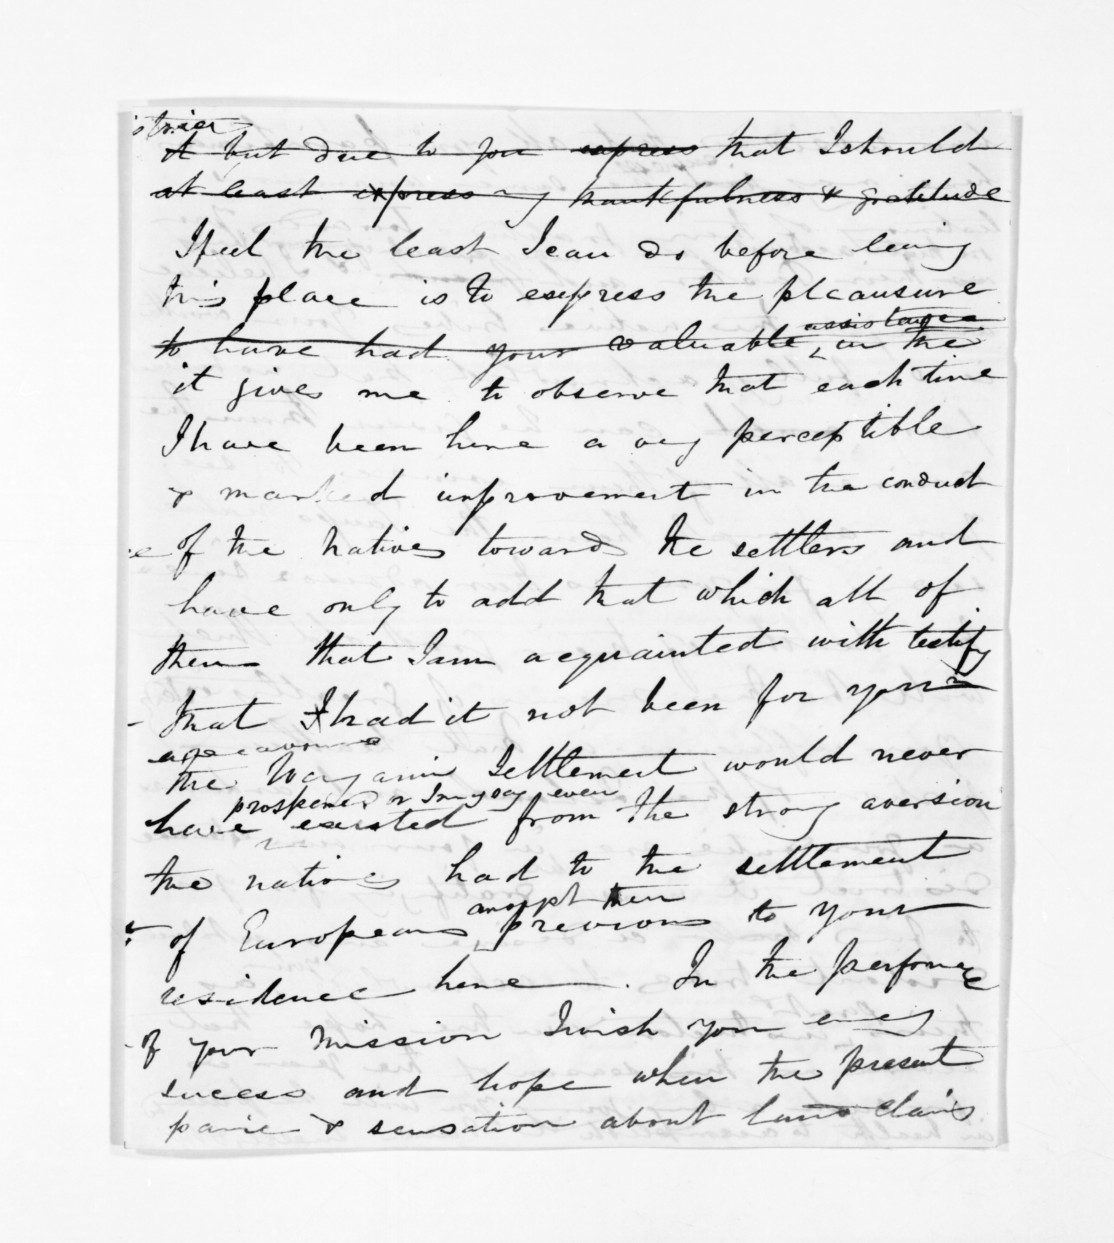 it but due to you express that I should
at least express my thankfulness & gratitude
I feel the least I can do before leaving
this place is to express the pleausure
to have had your valuable assistance in the
it gives me to observe that each time
I have been here a very perceptible
& marked improvement in the conduct
of the natives towards the settlers and
have only to add that which all of
them that I am acquainted with testify
that I had it not been for your
the Wanganui Settlement would never
prospered or I may say even
have existed from the strong aversion
the natives had to the settlement
amongst them
of Europeans previous to your
residence here. In the performce
of your Mission I wish you every
success and hope when the present
panic & sensation about land claims